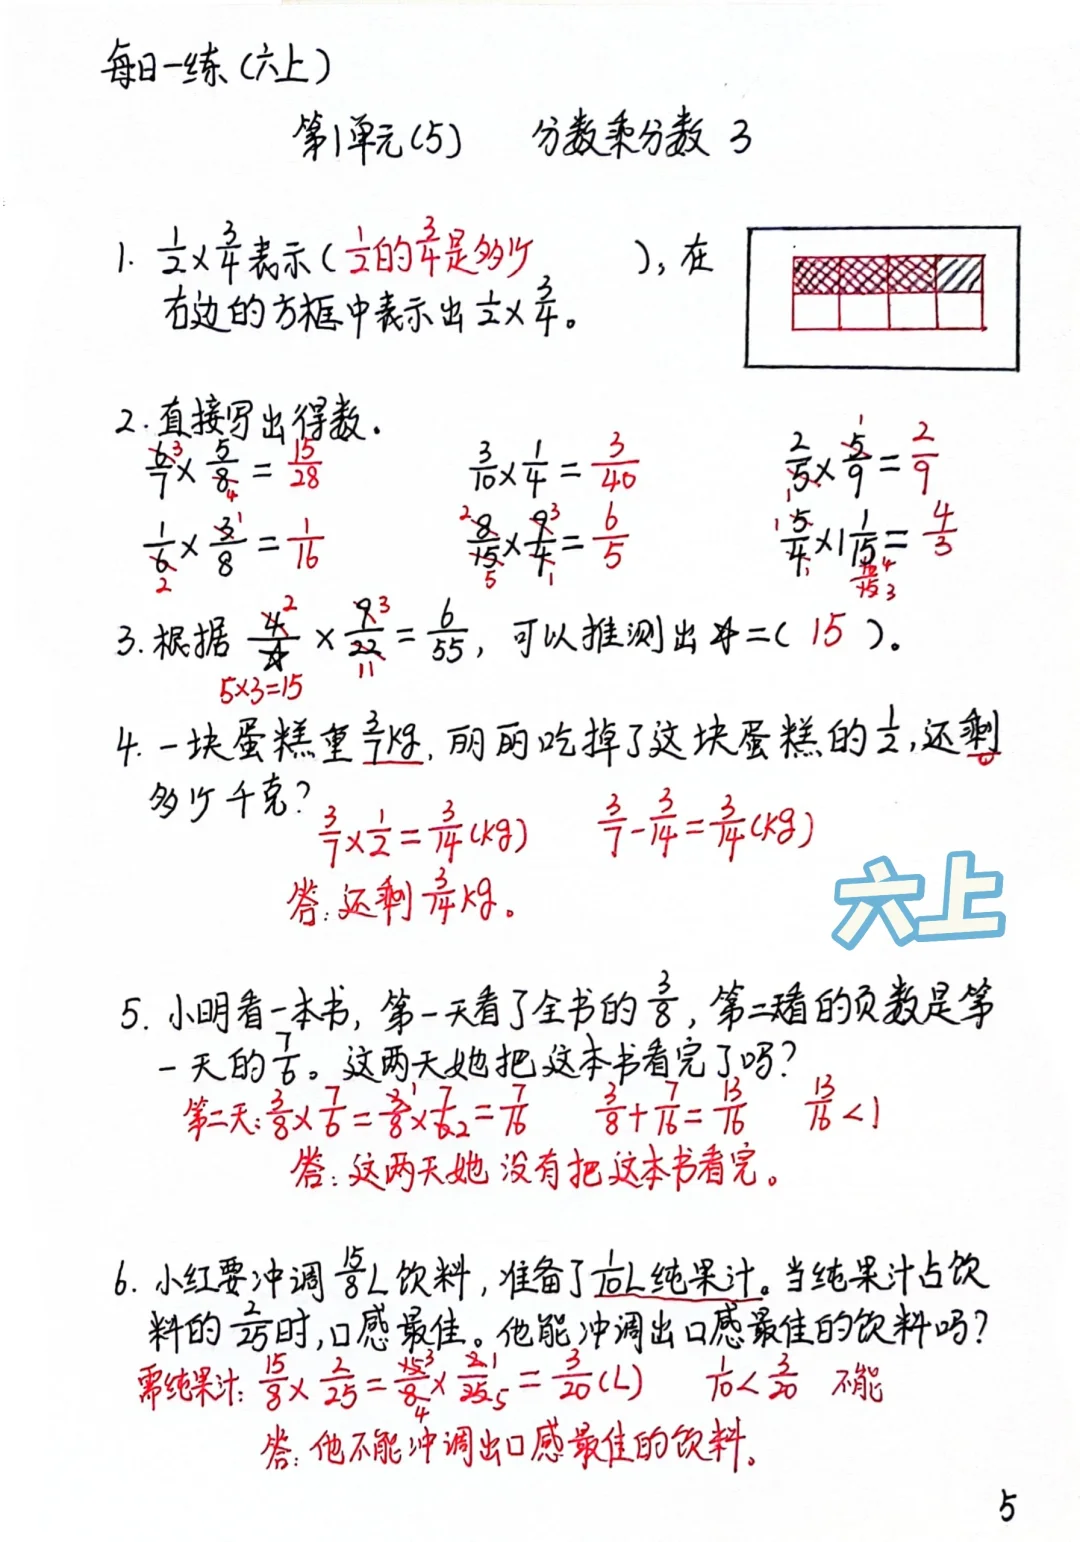 每日一练(六上)
第1单元(5) 分数乘分数 3
1. 1/2×3/4表示(1/2的3/4是多少),在
右边的方框中表示出1/2×3/4。
2.直接写出得数.
6/7×5/8=15/28 3/10×1/4=3/40 2/5×5/9=2/9
3 4 1 1
1/6×3/8=1/16 8/15×9/4=6/5 5/4×1 1/15=4/3
2 1 2 3 5 1 1 1 16/15 4 3
3.根据 4/☆×9/22=6/55,可以推测出☆=(15)。
2 3 11
5×3=15
4.一块蛋糕重3/7kg,丽丽吃掉了这块蛋糕的1/2,还剩
多少千克?
3/7×1/2=3/14(kg) 3/7-3/14=3/14(kg)
答:还剩3/14kg。
六上
5.小明看一本书,第一天看了全书的3/8,第二天看的页数是第
一天的7/6。这两天她把这本书看完了吗?
第二天:3/8×7/6=3/8×7/6=7/16 3/8+7/16=13/16 13/16<1
1 2
答:这两天她没有把这本书看完。
6.小红要冲调15/8L饮料,准备了1/10L纯果汁。当纯果汁占饮
料的2/25时,口感最佳。他能冲调出口感最佳的饮料吗?
需纯果汁:15/8×2/25=15/8×2/25=3/20(L) 1/10<3/20 不能
3 1 4 5
答:他不能冲调出口感最佳的饮料。
5